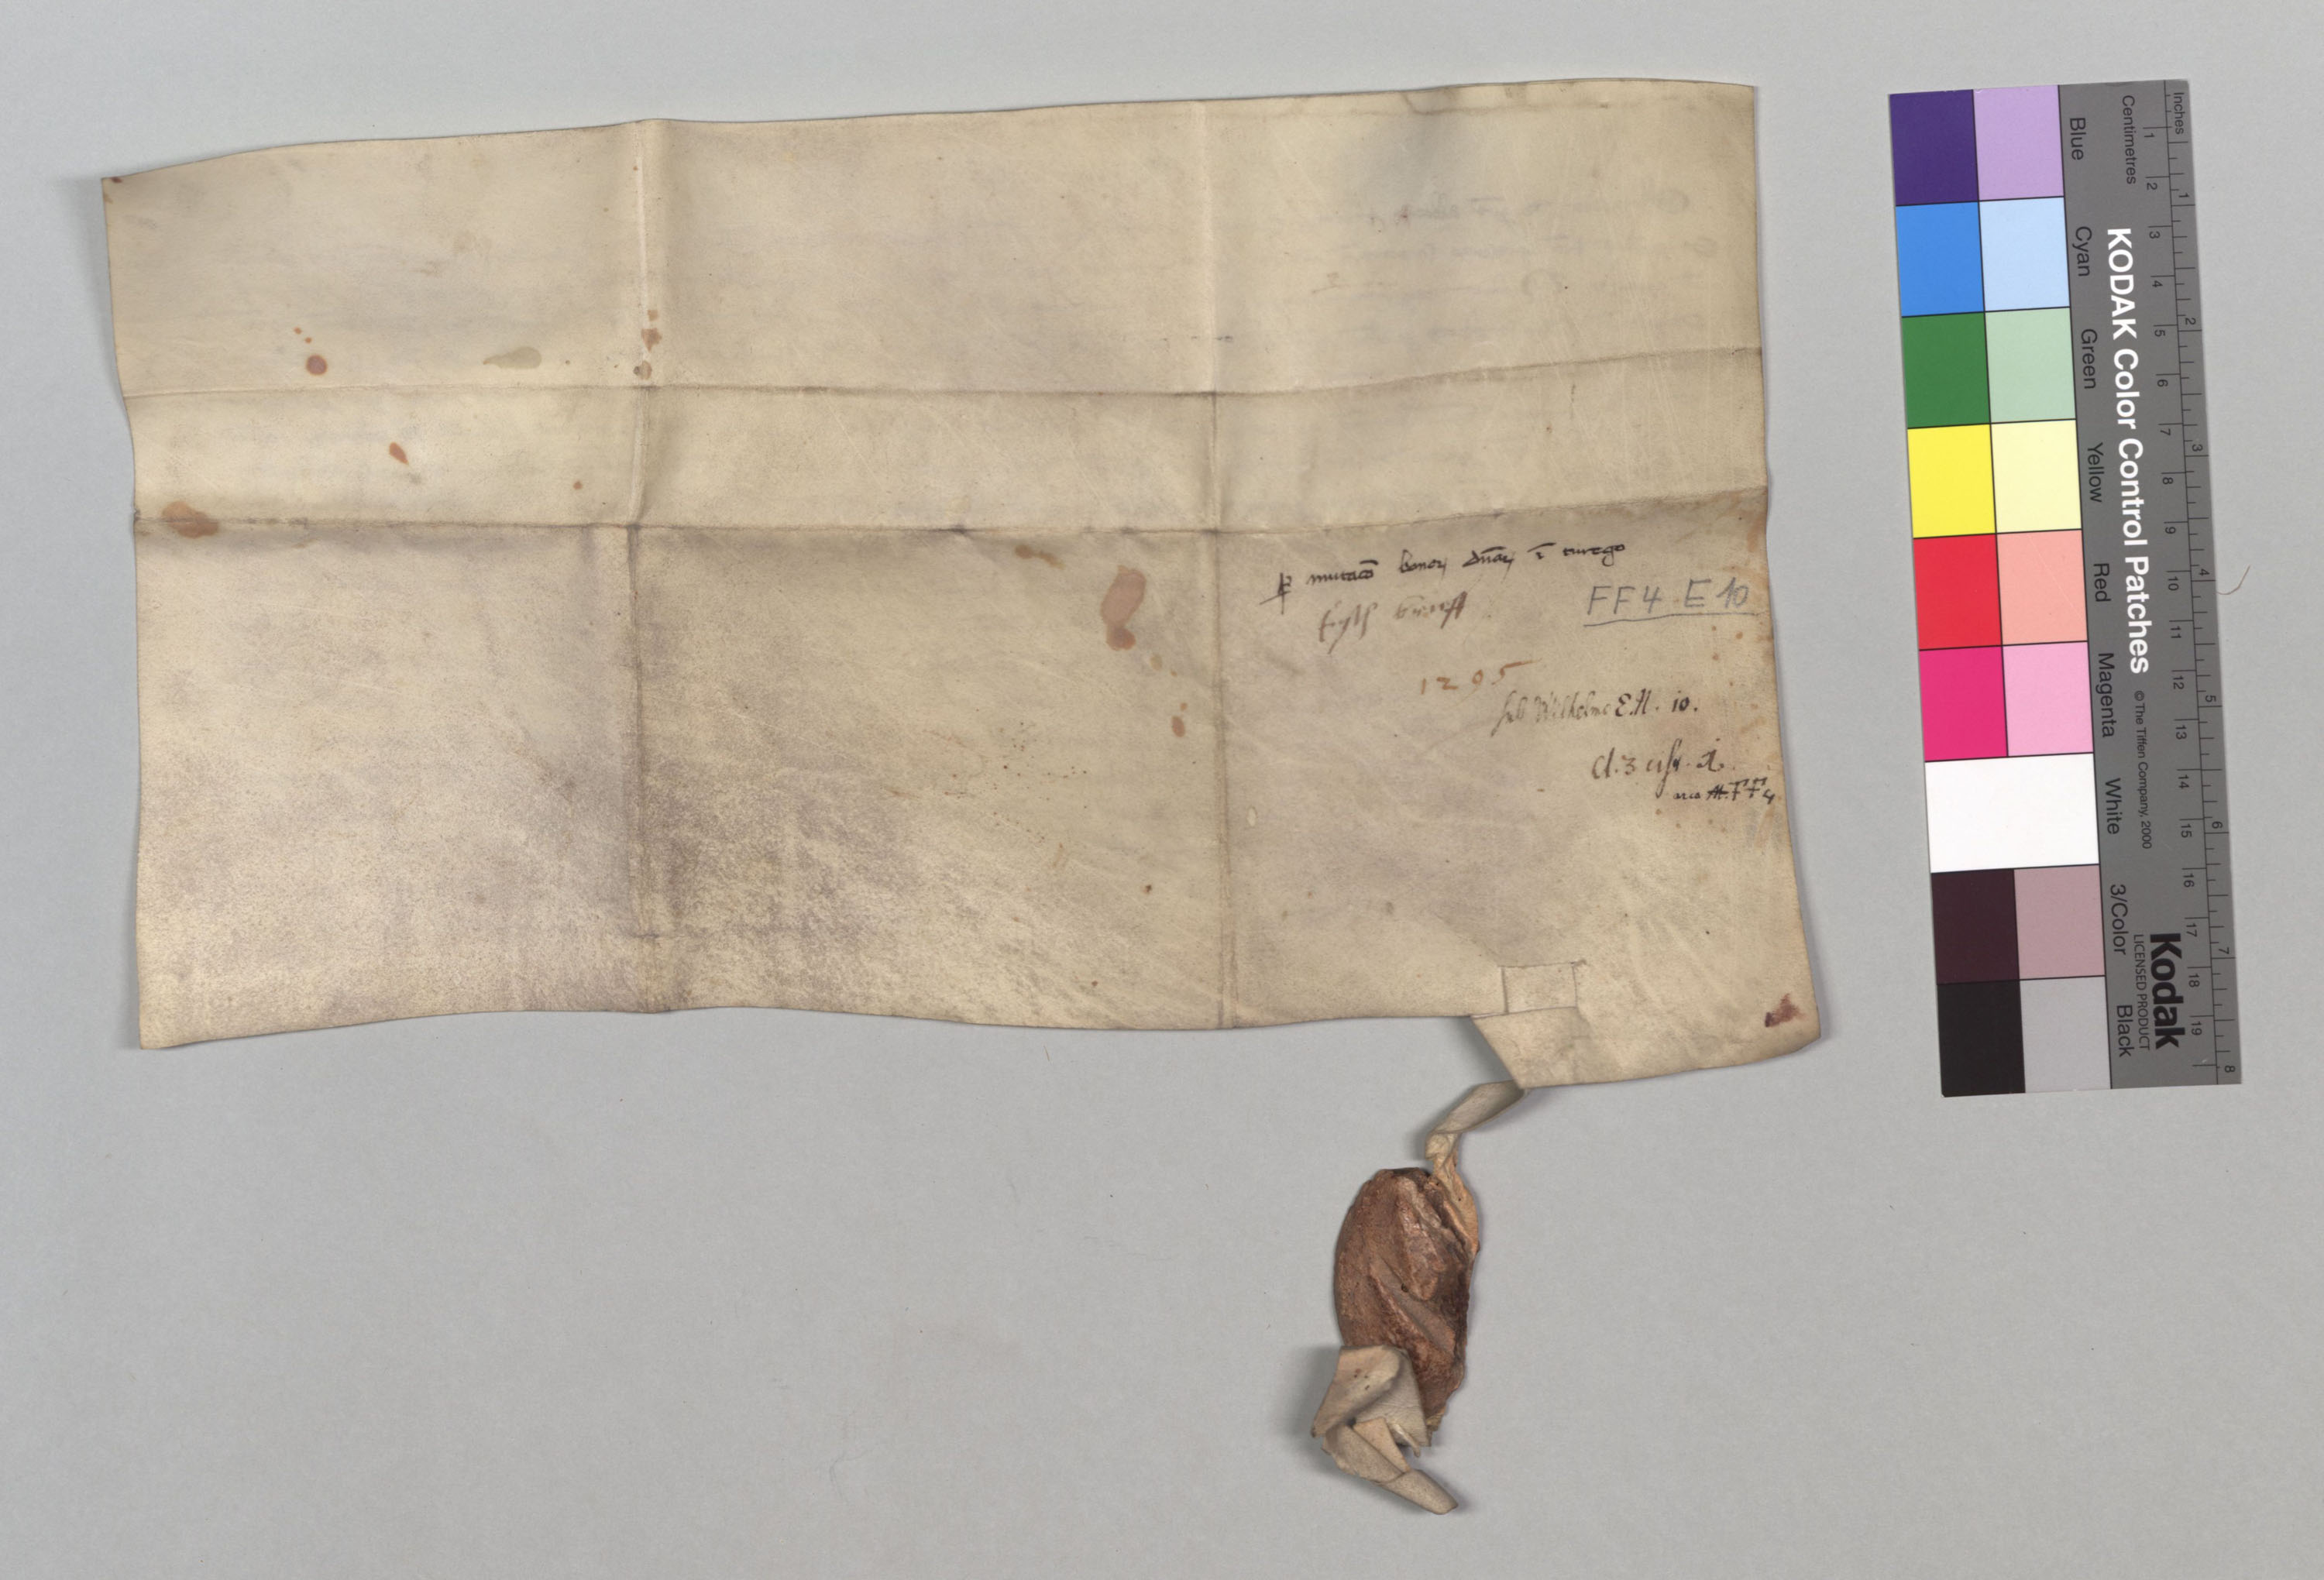 mutacō bonoꝝ dn̄aꝝ ī turego
FF4 E10
1295
sub Wilhelmo E.N. 10.
Cl. 3 cist. 1.
arca FF4
Inches
Centimetres
1 2 3 4 5 6 7 8 9 10 11 12 13 14 15 16 17 18 19
1 2 3 4 5 6 7 8
KODAK Color Control Patches © The Tiffen Company, 2000
Kodak
LICENSED PRODUCT
Blue
Cyan
Green
Yellow
Red
Magenta
White
3/Color
Black